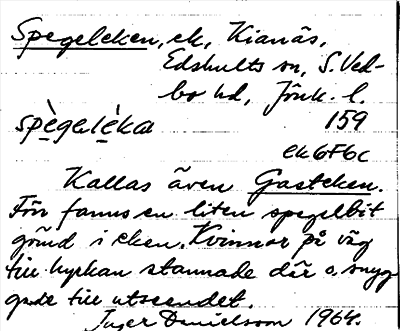 Spegeleken, ek, Kianäs,
Edshults sn, S. Ved-
bo hd, Jönk. l.
spègelèka 159
ek6F6c
Kallas även Gasteken.
Förr fanns en liten spegelbit
gömd i eken. Kvinnor på väg
till kyrkan stannade där o. snygg
gade till utseendet.
Inger Danielsson 1964.